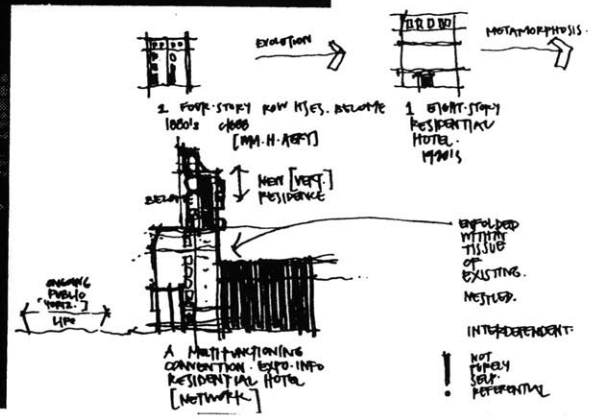 EVOLUTION
METAMORPHOSIS
2 FOUR-STORY ROW HSES. BECOME
1880's
1 EIGHT-STORY
RESIDENTIAL
HOTEL.
1920'S
BECOME
NEW [VERT.]
RESIDENCE
ENFOLDED
WITHIN
TISSUE
OF
EXISTING.
NESTLED.
INTERDEPENDENT.
! NOT
PURELY
SELF-
REFERENTIAL
ONGOING
PUBLIC
[HORIZ.]
LIFE
A MULTIFUNCTIONING
CONVENTION. EXPO. INFO
RESIDENTIAL HOTEL
[NETWORK]